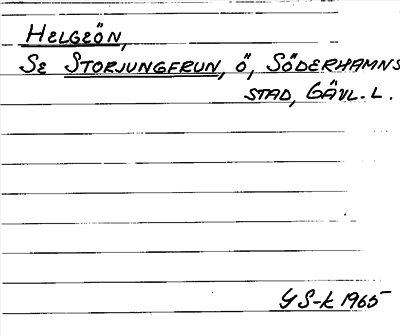 HELGEÖN,
SE STORJUNGFRUN, Ö, SÖDERHAMNS
STAD, GÄVL. L.
YS-K 1965